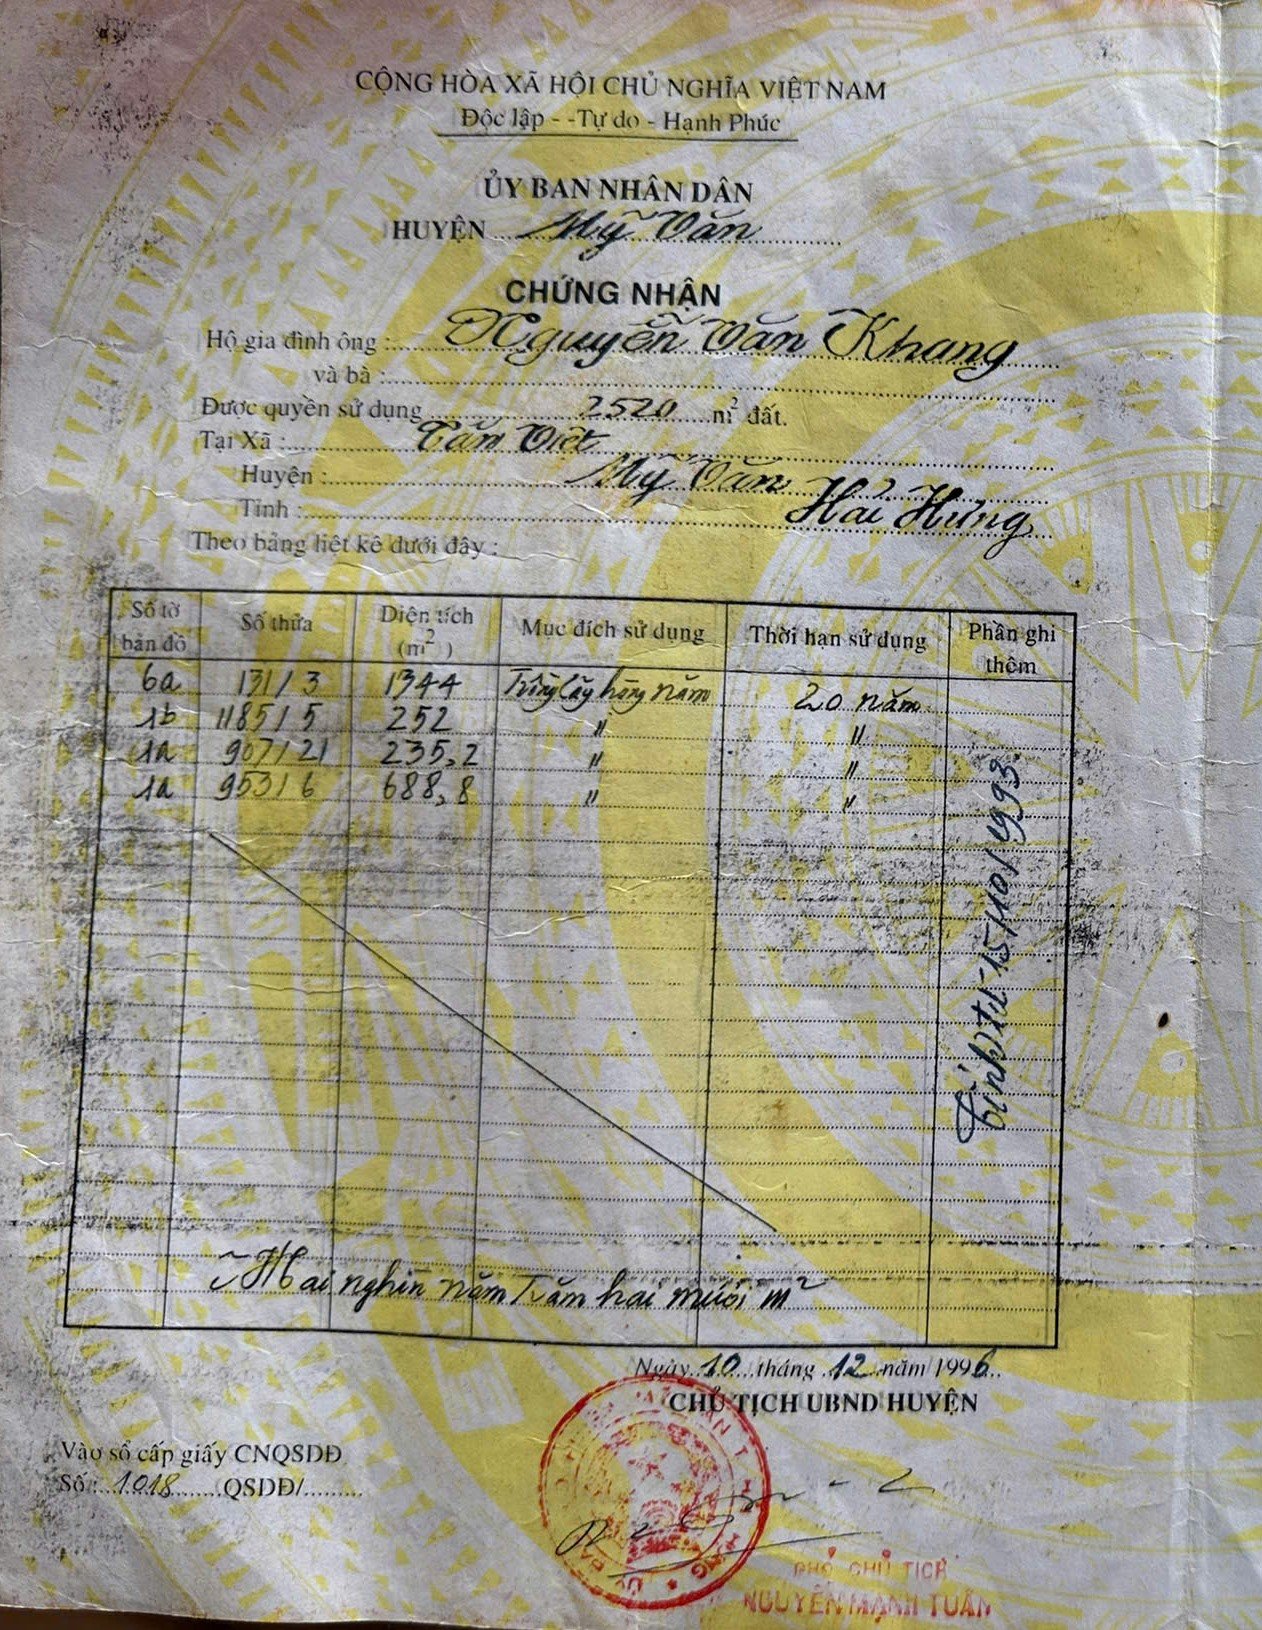 CỘNG HÒA XÃ HỘI CHỦ NGHĨA VIỆT NAM
Độc lập - -Tự do - Hạnh Phúc
ỦY BAN NHÂN DÂN
HUYỆN Mỹ Văn
CHỨNG NHẬN
Hộ gia đình ông : Nguyễn Văn Khang
và bà :
Được quyền sử dụng 2520 m² đất.
Tại Xã : Tân Việt
Huyện : Mỹ Văn
Tỉnh : Hải Hưng
Theo bảng liệt kê dưới đây :
Số tờ bản đồ Số thửa Diện tích (m²) Mục đích sử dụng Thời hạn sử dụng Phần ghi thêm
6a 131/3 1344 Trồng cây hàng năm 20 năm
1b 1185/5 252 " "
1a 907/21 235,2 " "
1a 953/6 688,8 " "
Tính từ 15/10/1993
Hai nghìn năm trăm hai mươi m²
Ngày 10 tháng 12 năm 1996
CHỦ TỊCH UBND HUYỆN
Vào sổ cấp giấy CNQSDĐ
Số : 1018 QSDĐ/
PHÓ CHỦ TỊCH
NGUYỄN MẠNH TUẤN